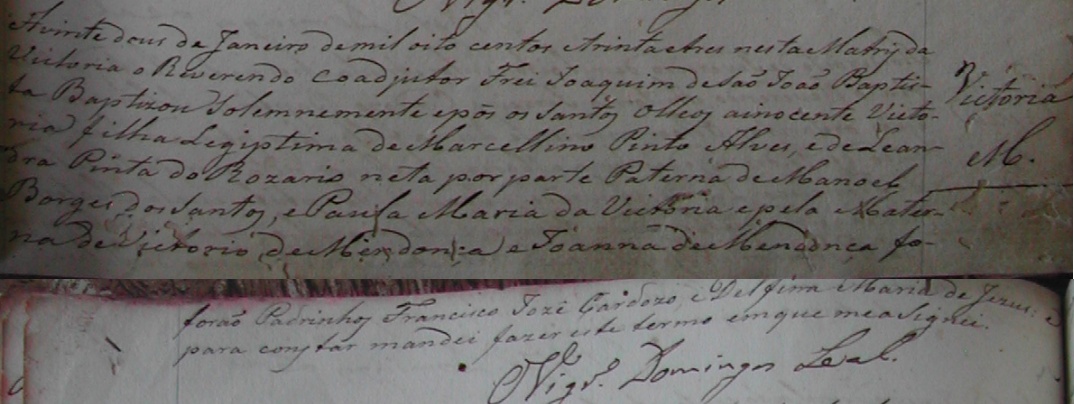 Vigr.o Domingos
Avinte dous de Janeiro demil oito centos etrinta etres nesta Matriz da
Victoria o Reverendo Coadjutor Frei Joaquim de São João Baptis-
ta Baptizou Solemnemente epôs os Santos Olleos ainocente Victo-
ria filha Legiptima de Marcellino Pinto Alves, e de Lean-
dra Pinta do Rozario neta por parte Paterna de Manoel
Borges dos Santos, e Paula Maria da Victoria e pela Mater-
na de Victorio de Mendonça e Joanna de Mendonca fo-
Victoria
M.
forão Padrinhos Francisco Jozê Cardozo, e Delfina Maria de Jezus: e
para constar mandei fazer este termo emque me aSignei.
Vigr.o Domingos Leal.